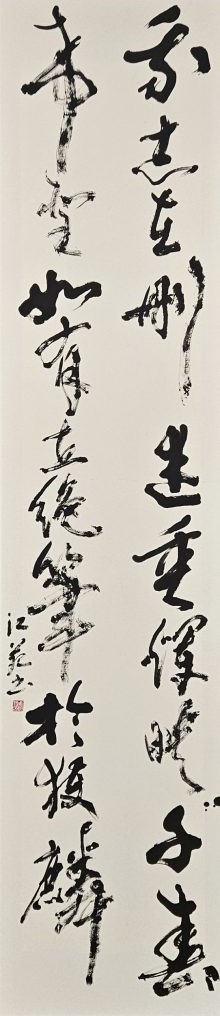 我志在刪述垂輝映千春
希聖如有立絕筆於獲麟
江書